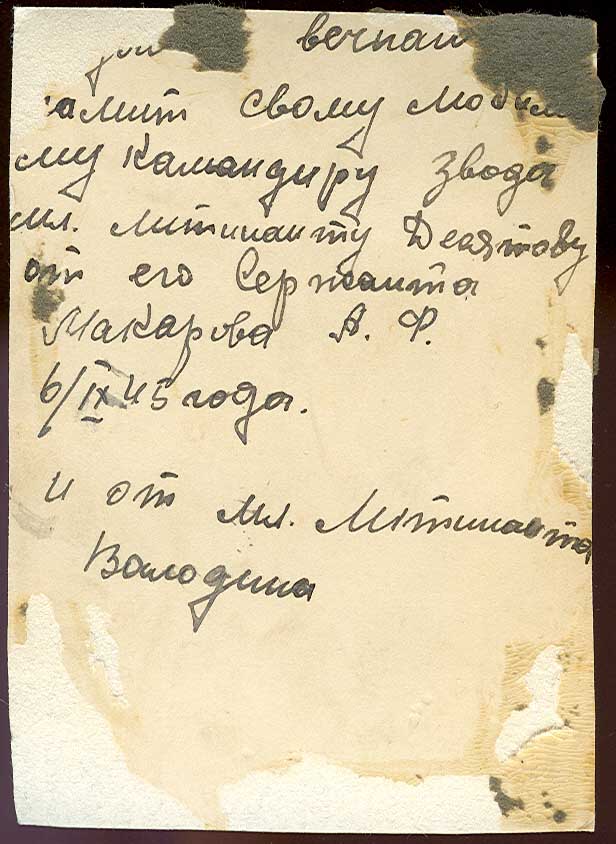 вечнаи
амит свому Люби
му Камандиру Звода
мл. Литинанту Десятову
от его Сержанта
Макарова А. Ф.
6/IX 45 года.
и от мл. Литинанта
Володина